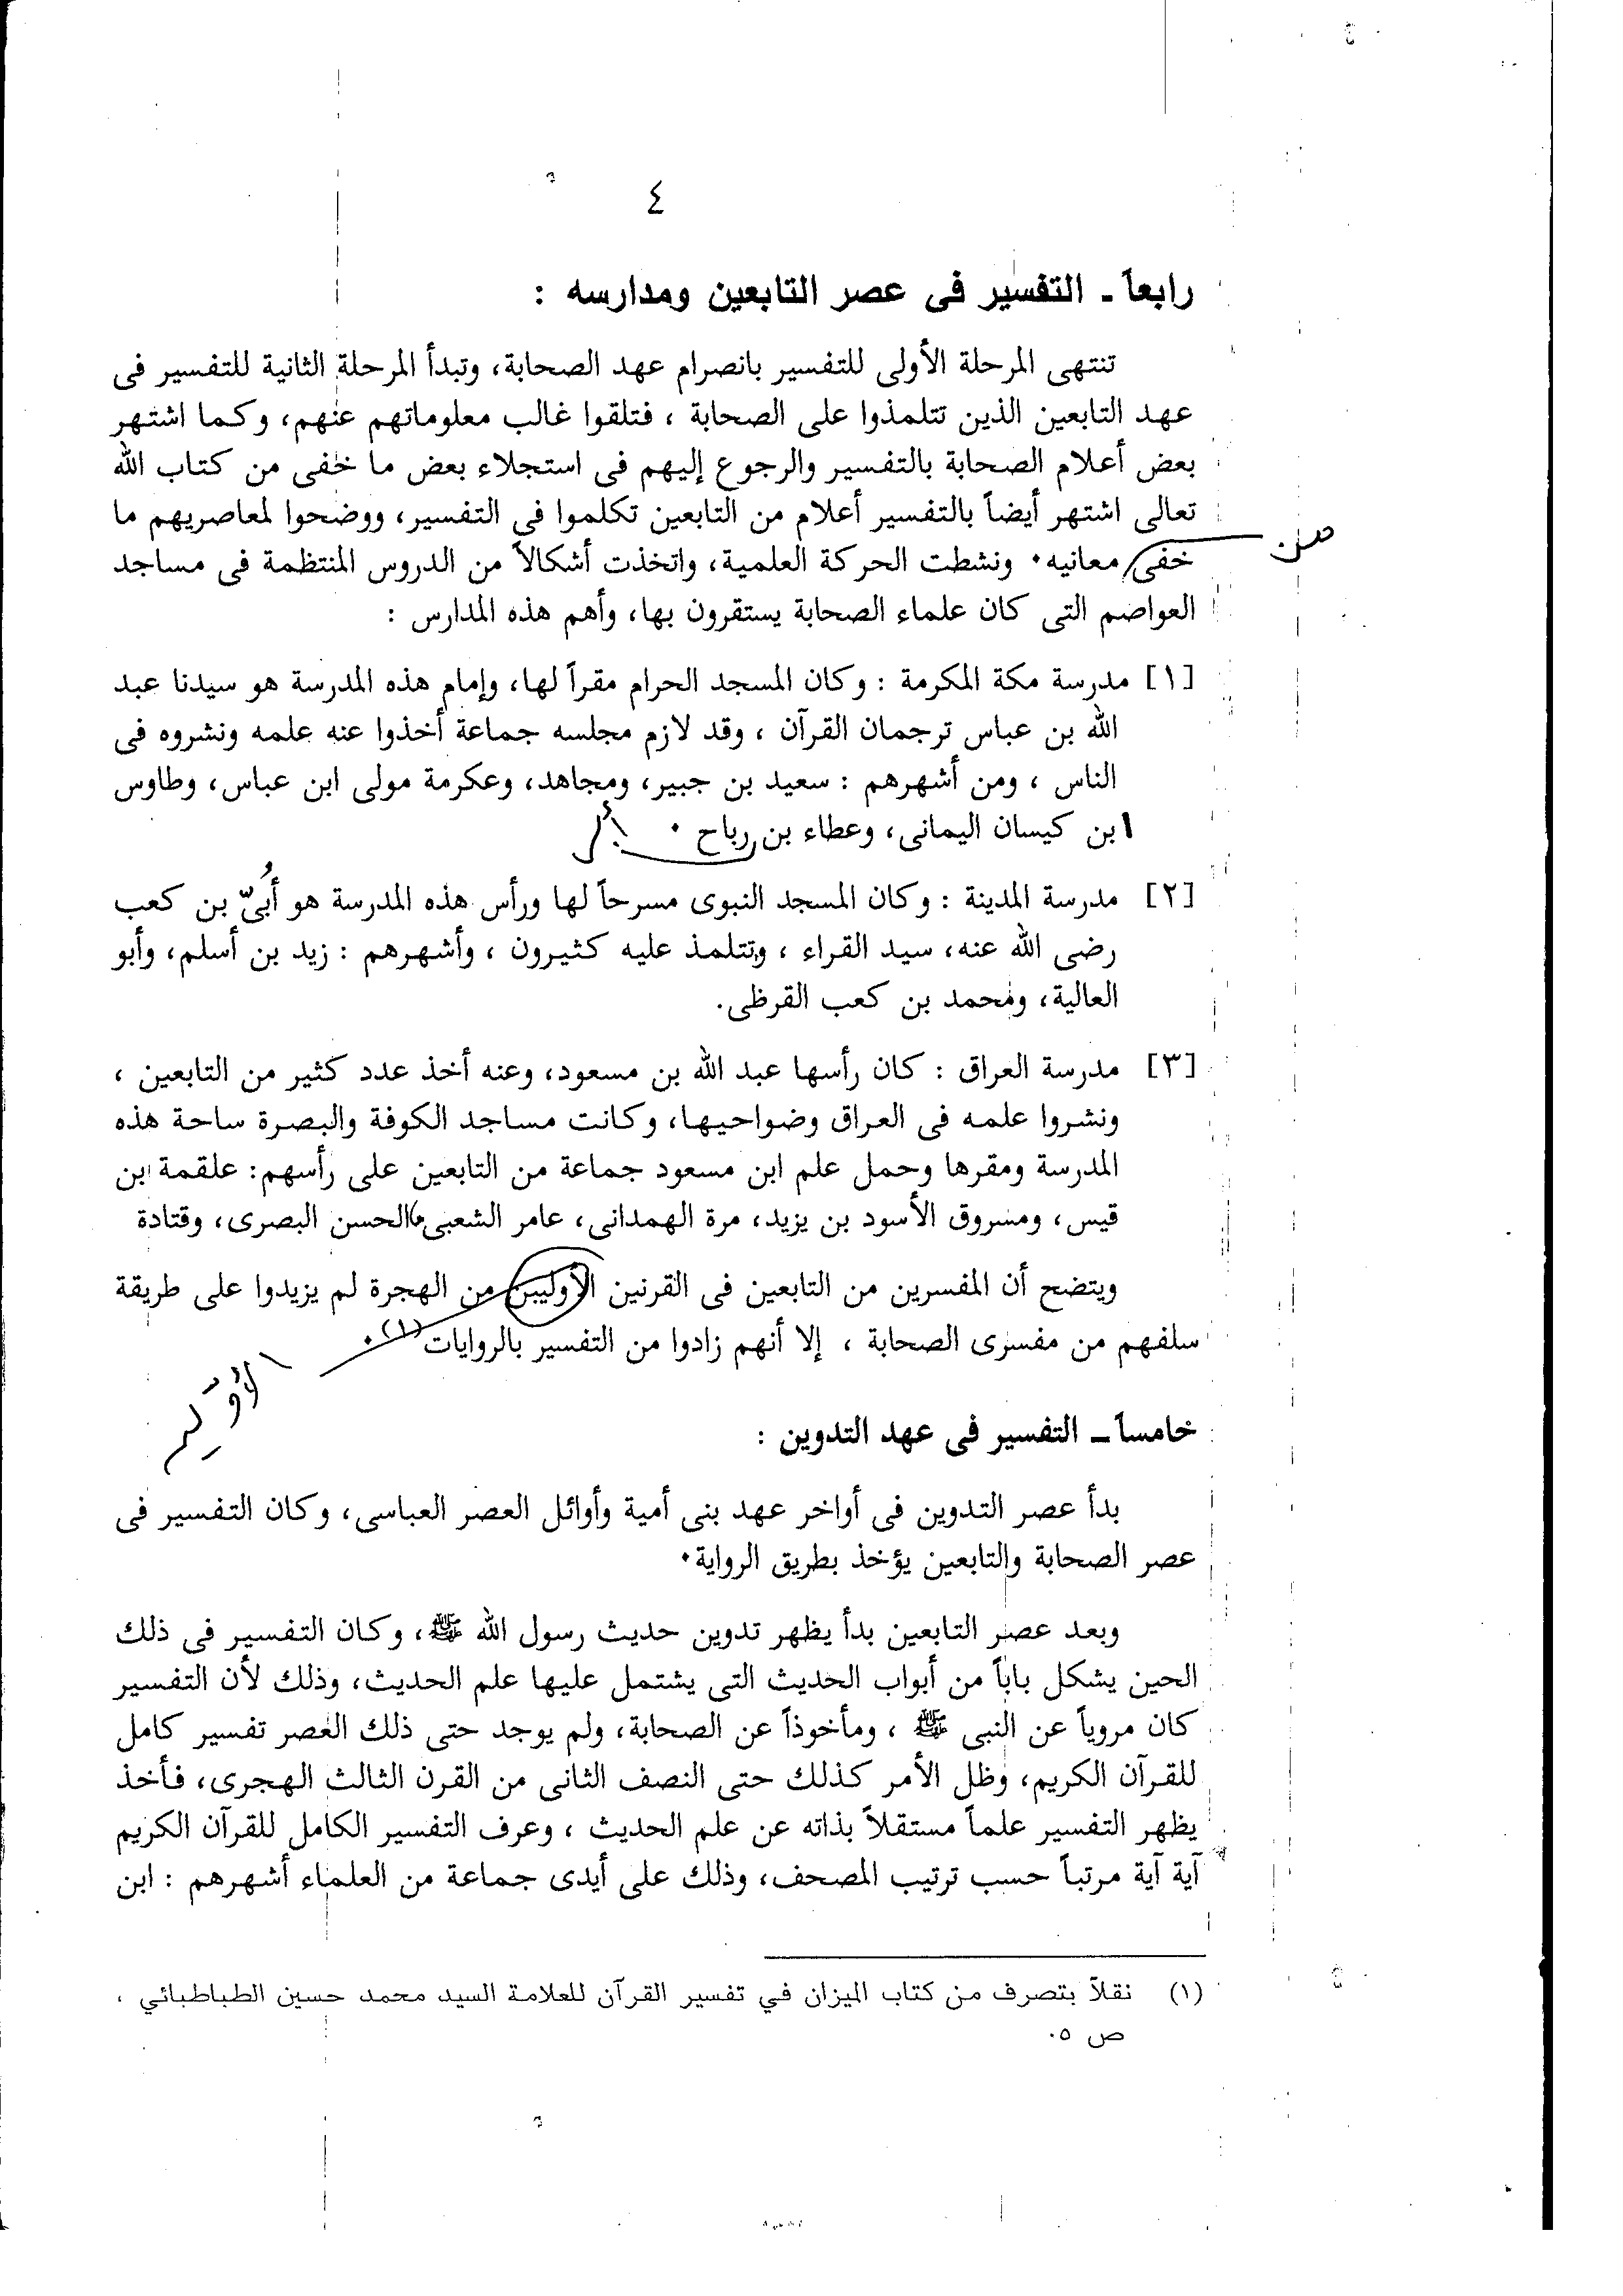 ٤
رابعاً ـ التفسير فى عصر التابعين ومدارسه :
تنتهى المرحلة الأولى للتفسير بانصرام عهد الصحابة، وتبدأ المرحلة الثانية للتفسير فى
عهد التابعين الذين تتلمذوا على الصحابة ، فتلقوا غالب معلوماتهم عنهم، وكما اشتهر
بعض أعلام الصحابة بالتفسير والرجوع إليهم فى استجلاء بعض ما خفى من كتاب الله
تعالى اشتهر أيضاً بالتفسير أعلام من التابعين تكلموا فى التفسير، ووضحوا لمعاصريهم ما
من
خفى معانيه. ونشطت الحركة العلمية، واتخذت أشكالاً من الدروس المنتظمة فى مساجد
العواصم التى كان علماء الصحابة يستقرون بها، وأهم هذه المدارس :
[١] مدرسة مكة المكرمة : وكان المسجد الحرام مقراً لها، وإمام هذه المدرسة هو سيدنا عبد
الله بن عباس ترجمان القرآن ، وقد لازم مجلسه جماعة أخذوا عنه علمه ونشروه فى
الناس ، ومن أشهرهم : سعيد بن جبير، ومجاهد، وعكرمة مولى ابن عباس، وطاوس
ابن كيسان اليمانى، وعطاء بن رباح .
[٢] مدرسة المدينة : وكان المسجد النبوى مسرحاً لها ورأس هذه المدرسة هو أُبىّ بن كعب
رضى الله عنه، سيد القراء ، وتتلمذ عليه كثيرون ، وأشهرهم : زيد بن أسلم، وأبو
العالية، ومحمد بن كعب القرظى.
[٣] مدرسة العراق : كان رأسها عبد الله بن مسعود، وعنه أخذ عدد كثير من التابعين ،
ونشروا علمه فى العراق وضواحيها، وكانت مساجد الكوفة والبصرة ساحة هذه
المدرسة ومقرها وحمل علم ابن مسعود جماعة من التابعين على رأسهم: علقمة ابن
قيس، ومسروق الأسود بن يزيد، مرة الهمدانى، عامر الشعبى، الحسن البصرى، وقتادة
ويتضح أن المفسرين من التابعين فى القرنين الأوليين من الهجرة لم يزيدوا على طريقة
سلفهم من مفسرى الصحابة ، إلا أنهم زادوا من التفسير بالروايات(١).
خامساً ـ التفسير فى عهد التدوين :
بدأ عصر التدوين فى أواخر عهد بنى أمية وأوائل العصر العباسى، وكان التفسير فى
عصر الصحابة والتابعين يؤخذ بطريق الرواية.
وبعد عصر التابعين بدأ يظهر تدوين حديث رسول الله ﷺ، وكان التفسير فى ذلك
الحين يشكل باباً من أبواب الحديث التى يشتمل عليها علم الحديث، وذلك لأن التفسير
كان مروياً عن النبى ﷺ ، ومأخوذاً عن الصحابة، ولم يوجد حتى ذلك العصر تفسير كامل
للقرآن الكريم، وظل الأمر كذلك حتى النصف الثانى من القرن الثالث الهجرى، فأخذ
يظهر التفسير علماً مستقلاً بذاته عن علم الحديث ، وعرف التفسير الكامل للقرآن الكريم
آية آية مرتباً حسب ترتيب المصحف، وذلك على أيدى جماعة من العلماء أشهرهم : ابن
(١) نقلاً بتصرف من كتاب الميزان في تفسير القرآن للعلامة السيد محمد حسين الطباطبائي ،
ص ٥.